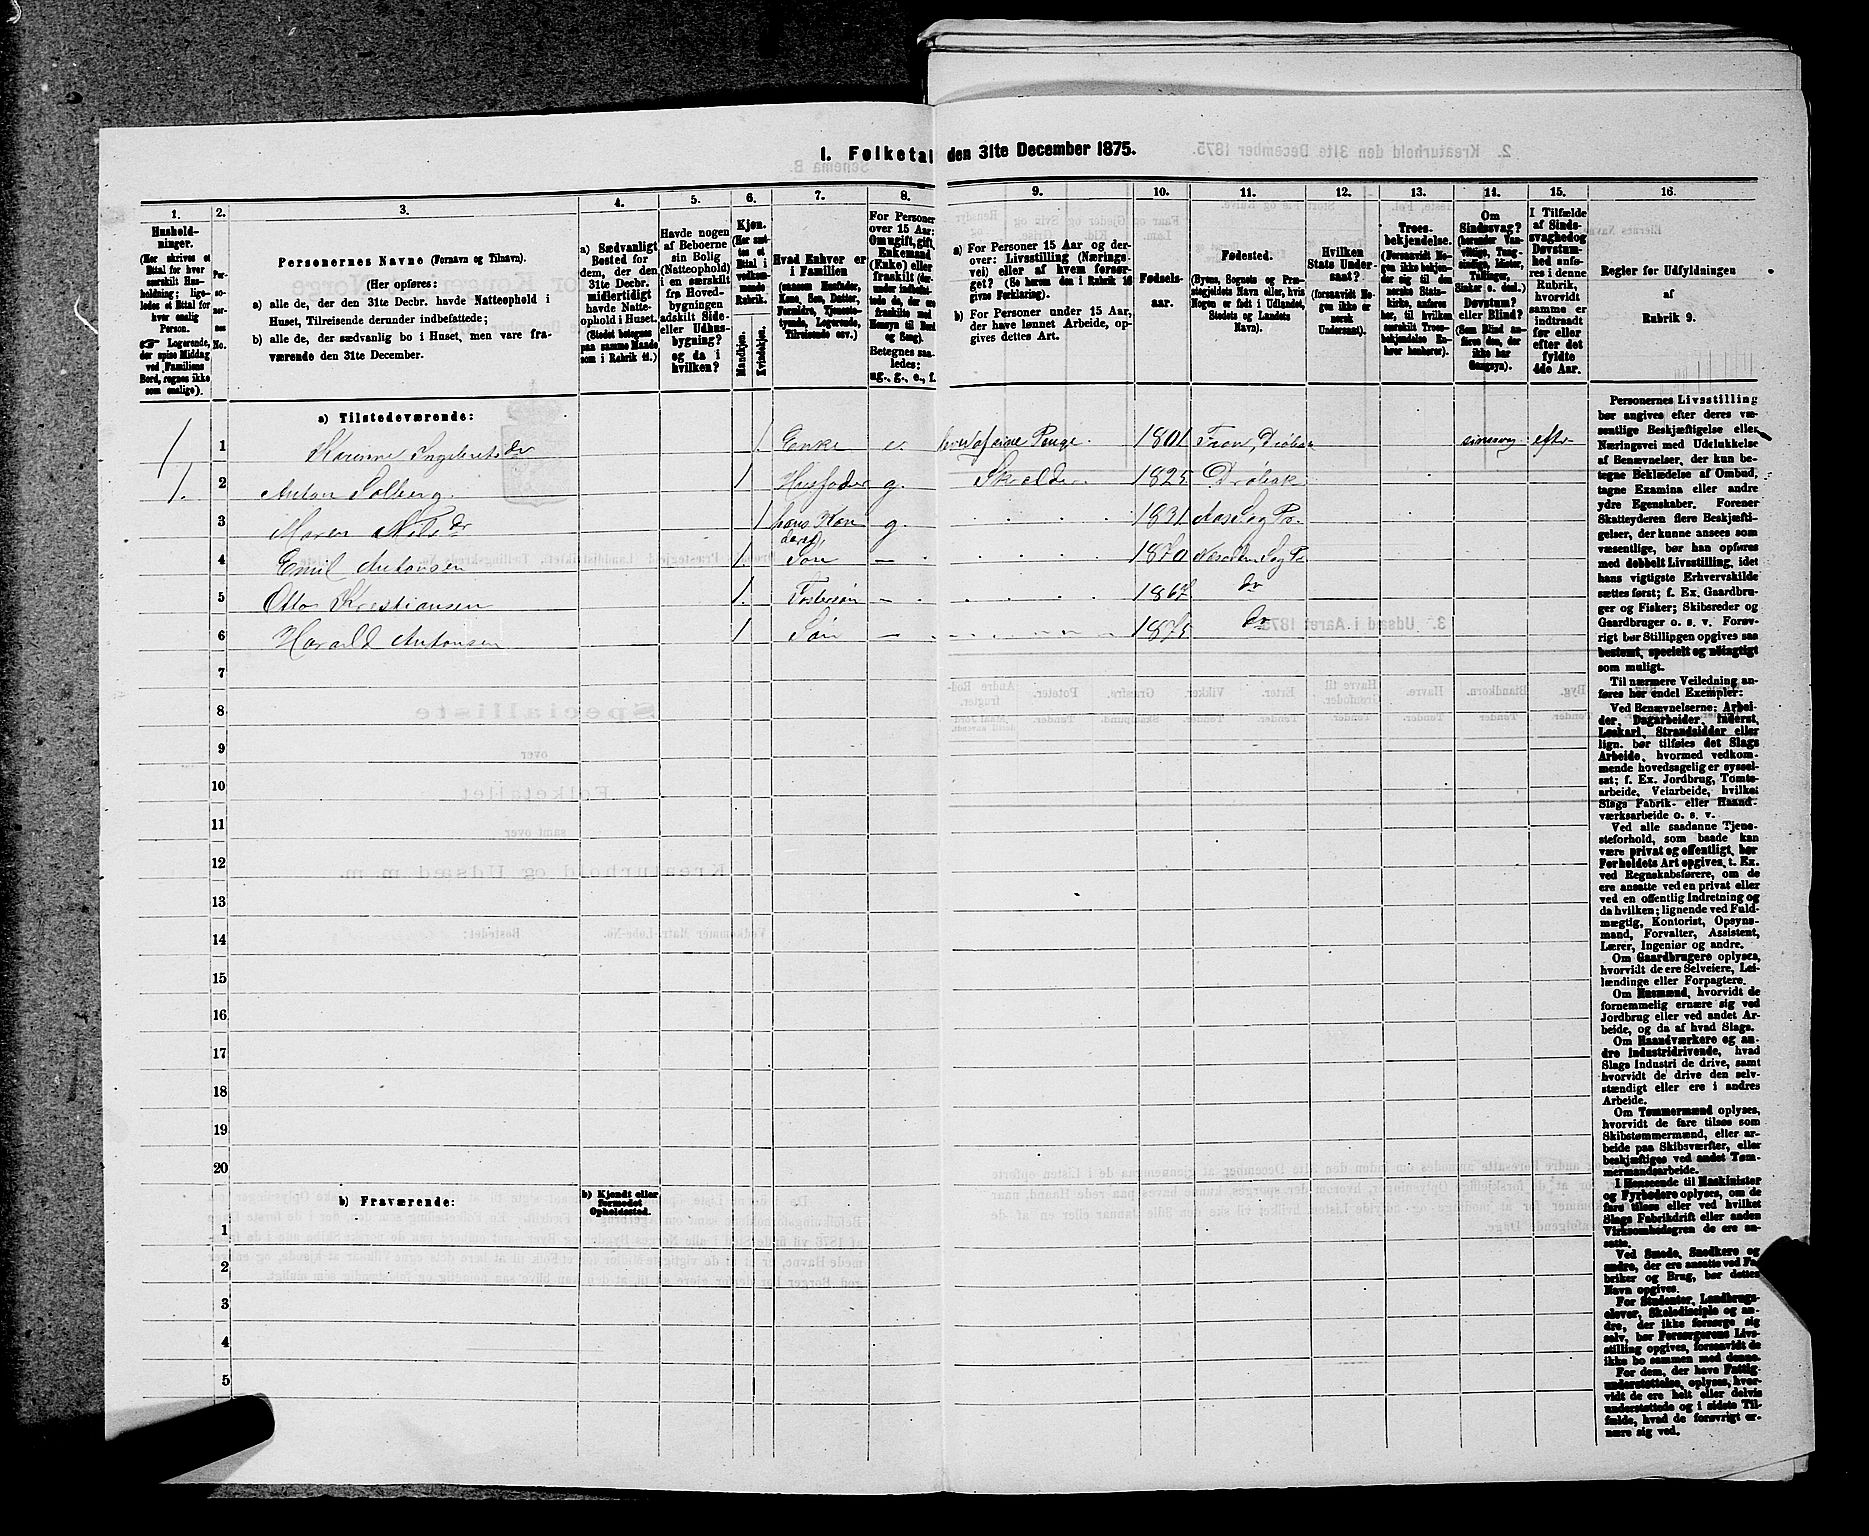 1. Folketal den 31te December 1875.
1.
2.
3.
4.
5.
6.
7.
8.
9.
10.
11.
12.
13.
14.
15.
16.
Hushold-
ninger.
(Her skrives et
Ettal for hver
særskilt Hus-
holdning; lige-
ledes et Ettal for
hver enslig
Person.
☞ Logerende,
der spise Middag
ved Familiens
Bord, regnes ikke
som enslige).
Per-
so-
ner-
nes
No.
Personernes Navne (Fornavn og Tilnavn).
(Her opføres:
a) alle de, der den 31te Decbr. havde Natteophold i
Huset, Tilreisende derunder indbefattede;
b) alle de, der sædvanlig bo i Huset, men vare fra-
værende den 31te December.
a) Sædvanligt
Bosted for
dem, der den
31te Decbr.
midlertidigt
havde Natte-
ophold i Huset.
(Stedet betegnes
paa samme Maade
som i Rubrik 11.)
Havde nogen
af Beboerne
sin Bolig
(Natteophold)
i en særskilt
fra Hoved-
bygningen
adskilt Side-
eller Udhus-
bygning?
og da i
hvilken?
Kjøn.
(Her sæt-
tes et
Ettal i
vedkom-
mende
Rubrik.
Mandkjøn.
Kvindekjøn.
Hvad Enhver er
i Familien
(saasom Husfader,
Kone, Søn, Datter,
Forældre, Tjeneste-
tyende, Logerende,
Tilreisende osv.)
For Personer
over 15 Aar:
Om ugift, gift,
Enkemand
(Enke) eller
fraskilt (der-
under indbefat-
tede de, der ere
fraskilte med
Hensyn til Bord
og Seng).
Betegnes saa-
ledes:
ug., g., e., f.
a) For Personer 15 Aar og der-
over: Livsstilling (Nærings-
vei) eller af hvem forsør-
get? (Se herom den i Rubrik 16
givne Forklaring).
b) For Personer under 15 Aar,
der have lønnet Arbeide, op-
gives dettes Art.
Fødsels-
aar.
Fødested.
(Byens, Sognets og Præ-
stegjeldets Navn eller, hvis
Nogen er født i Udlandet,
Stedets og Landets
Navn).
Hvilken
Stats Under-
saat?
(forsaavidt No-
gen ikke er
norsk
Undersaat).
Troes-
bekjendelse.
(Forsaavidt No-
gen ikke bekjen-
der sig til den
norske Stats-
kirke, anføres
her, til hvilken
særskilt Troes-
bekjendelse En-
hver henhører).
Om
Sindssvag?
(herunder Van-
vittige, Tung-
sindige, Idioter,
Tullinger,
Sinker o. desl.)
Døvstum?
eller Blind?
(Som Blind an-
føres den, der
ikke har
Gangsyn).
I Tilfælde
af Sinds-
svaghed og
Døvstum-
hed anfø-
res i denne
Rubrik,
hvorvidt
samme er
indtraadt
før eller
efter det
fyldte
4de Aar.
Regler for Udfyldningen
af
Rubrik 9.
a) Tilstedeværende:
1 1 Karinne Ingebretsdr 1. Enke e. 1801 Fron, Drøbak sinssvg efter
1. 2 Anton Solberg. 1 Husfader g. 1825 Drøbak
3 Maren Nilsdr 1 hans Kone g. 1831 Aas Sog Pr.
4 Emil Antonsen 1. Søn – 1870 Nesodden Sog Pr
5 Otto Kristiansen 1. Fostersøn – 1867 do
6 Harald Antonsen 1 Søn – 1875 do
7
8
9
10
11
12
13
14
15
16
17
18
19
20
b) Fraværende:
b) Kjendt eller
formodet
Opholdssted.
1
2
3
4
5
Personernes Livsstilling
bør angives efter deres væ-
sentlige Beskjæftigelse eller
Næringsvei med Udelukkelse
af Benævnelser, der kun be-
tegne Beklædelse af Ombud,
tagne Examina eller andre
ydre Egenskaber. Forener
Skatteyderen flere Beskjæfti-
gelser, der kunne ansees som
væsentlige, bør han opføres
med dobbelt Livsstilling, idet
hans vigtigste Erhvervskilde
sættes først; f. Ex. Gaardbru-
ger og Fisker; Skibsreder og
Gaardbruger o. s. v. Forøv-
rigt bør Stillingen opgives saa
bestemt, specielt og nøiagtigt
som muligt.
Til nærmere Veiledning an-
føres her endel Exempler:
Ved Benævnelserne: Arbei-
der, Dagarbeider, Inderst,
Løskarl, Strandsidder eller
lign. bør tilføies det Slags
Arbeide, hvormed vedkom-
mende hovedsagelig er syssel-
sat; f. Ex. Jordbrug, Tomte-
arbeide, Veiarbeide, hvilket
Slags Fabrik- eller Haand-
værksarbeide o. s. v.
Ved alle saadanne Tjene-
steforhold, som baade kan
være privat og offentligt, bør
Forholdets Art opgives, t. Ex.
ved Regnskabsførere, om de
ere ansatte ved en privat eller
ved en offentlig Indretning og
da hvilken; lignende ved Fuld-
mægtig, Kontorist, Opsyns-
mand, Forvalter, Assistent,
Lærer, Ingeniør og andre.
Om Gaardbrugere oplyses,
hvorvidt de ere Selveiere, Lei-
lændinge eller Forpagtere.
Om Husmænd, hvorvidt de
fornemmelig ernære sig ved
Jordbrug eller ved andet Ar-
beide, og da af hvad Slags.
Om Haandværkere og an-
dre industridrivende, hvad
Slags Industri de drive, samt
hvorvidt de drive den selv-
stændigt eller ere i andres
Arbeide.
Om Tømmermænd oplyses,
hvorvidt de fare tilsøs som
Skibstømmermænd, eller ar-
beide paa Skibsværfter, eller
beskjæftiges ved andet Tøm-
mermandsarbeide.
I Henseende til Maskinister
og Fyrbødere oplyses, om de
fare tilsøs eller ved hvilket
Slags Fabrikdrift eller anden
Virksomhedsgren de ere an-
satte.
Ved Smede, Snedkere og
andre, der ere ansatte ved Fa-
briker og Brug, bør dettes
Navn opgives.
For Studenter, Landbrugs-
elever, Skoledisciple og an-
dre, der ikke forsørge sig
selv, bør Forsørgerens Livs-
stilling opgives, forsaavidt de
ikke bo sammen med denne.
For dem, der have Fattig-
understøttelse, oplyses, hvor-
vidt de ere helt eller delvis
understøttede og i sidste Til-
fælde, hvad de forøvrigt er-
nære sig ved.